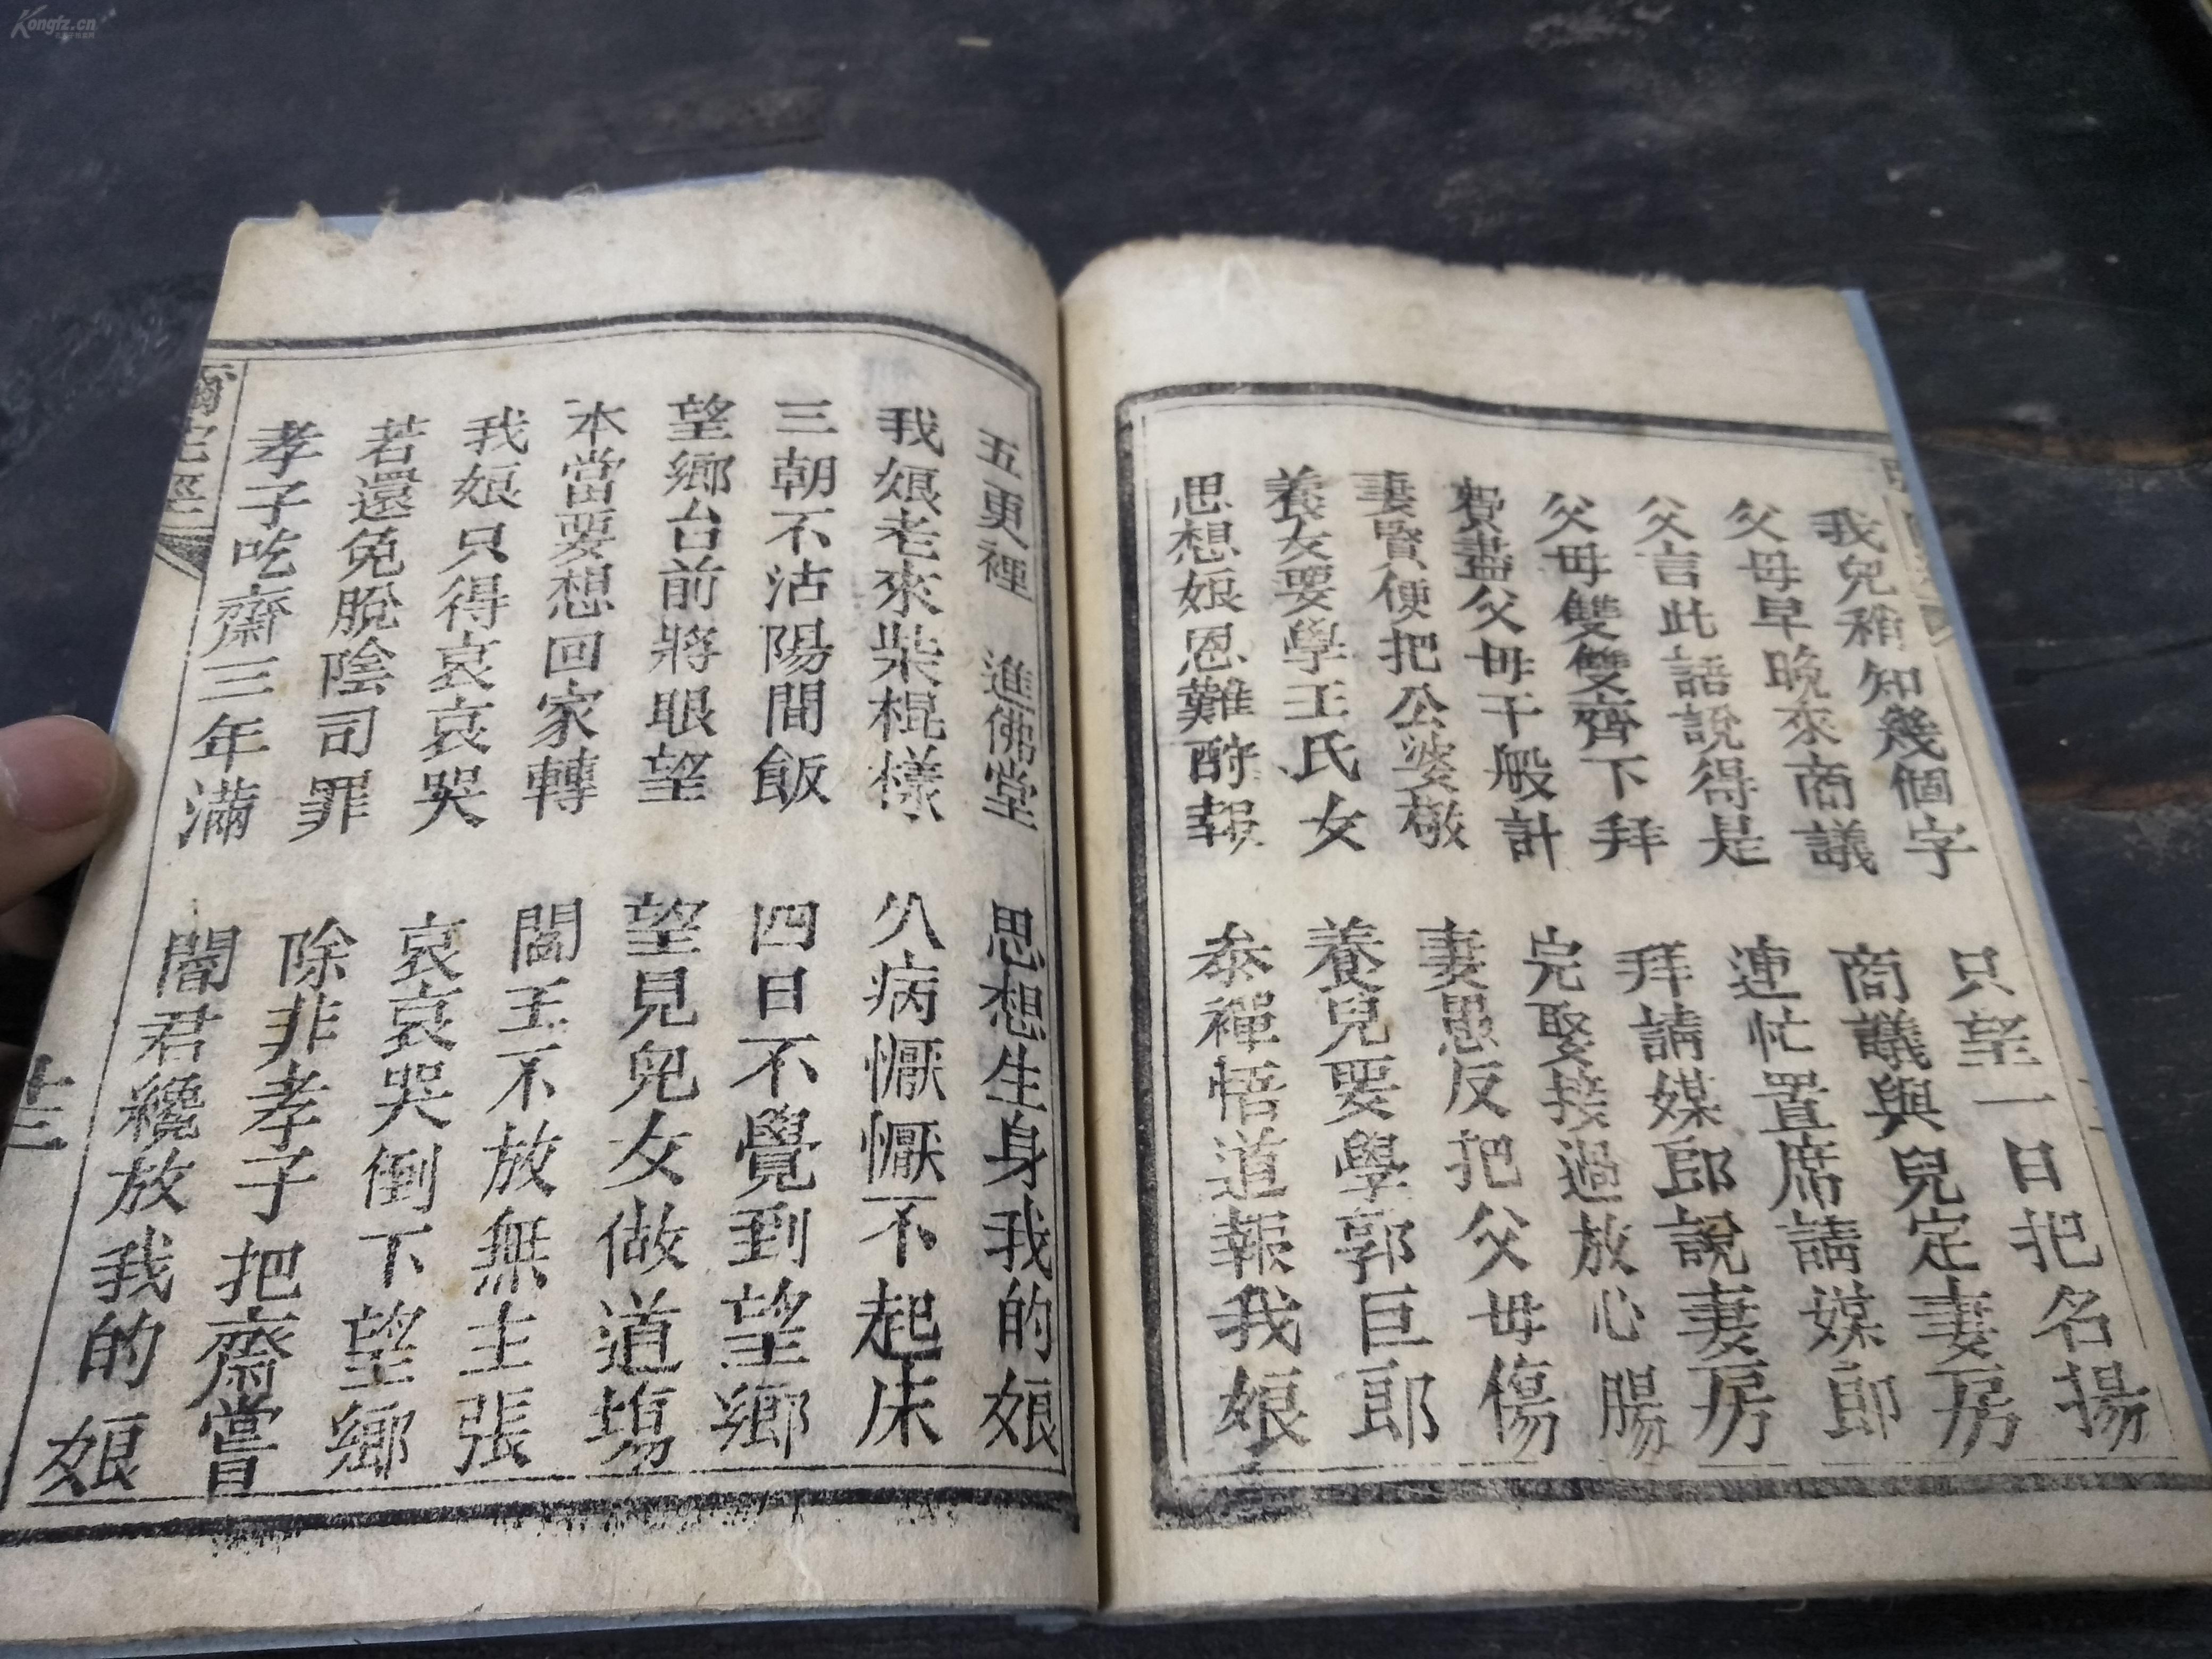 我兒稍知幾個字 只望一日把名揚
父母早晚來商議 商議與兒定妻房
父言此語說得是 連忙置席請媒郎
父母雙雙齊下拜 拜請媒郎說妻房
費盡父母千般計 完娶接過放心腸
妻賢便把公婆敬 妻愚反把父母傷
養女要學王氏女 養兒要學郭巨郎
思想娘恩難酧報 叅禪悟道報我娘
五更裡 進佛堂 思想生身我的娘
我娘老來柴棍樣 久病懨懨不起床
三朝不沾陽間飯 四日不覺到望鄉
望鄉台前將眼望 望見兒女做道塲
本當要想回家轉 閻王不放無主張
我娘只得哀哀哭 哀哀哭倒下望鄉
若還免脫陰司罪 除非孝子把齋嘗
孝子吃齋三年滿 閻君纔放我的娘
十三
Kongfz.cn